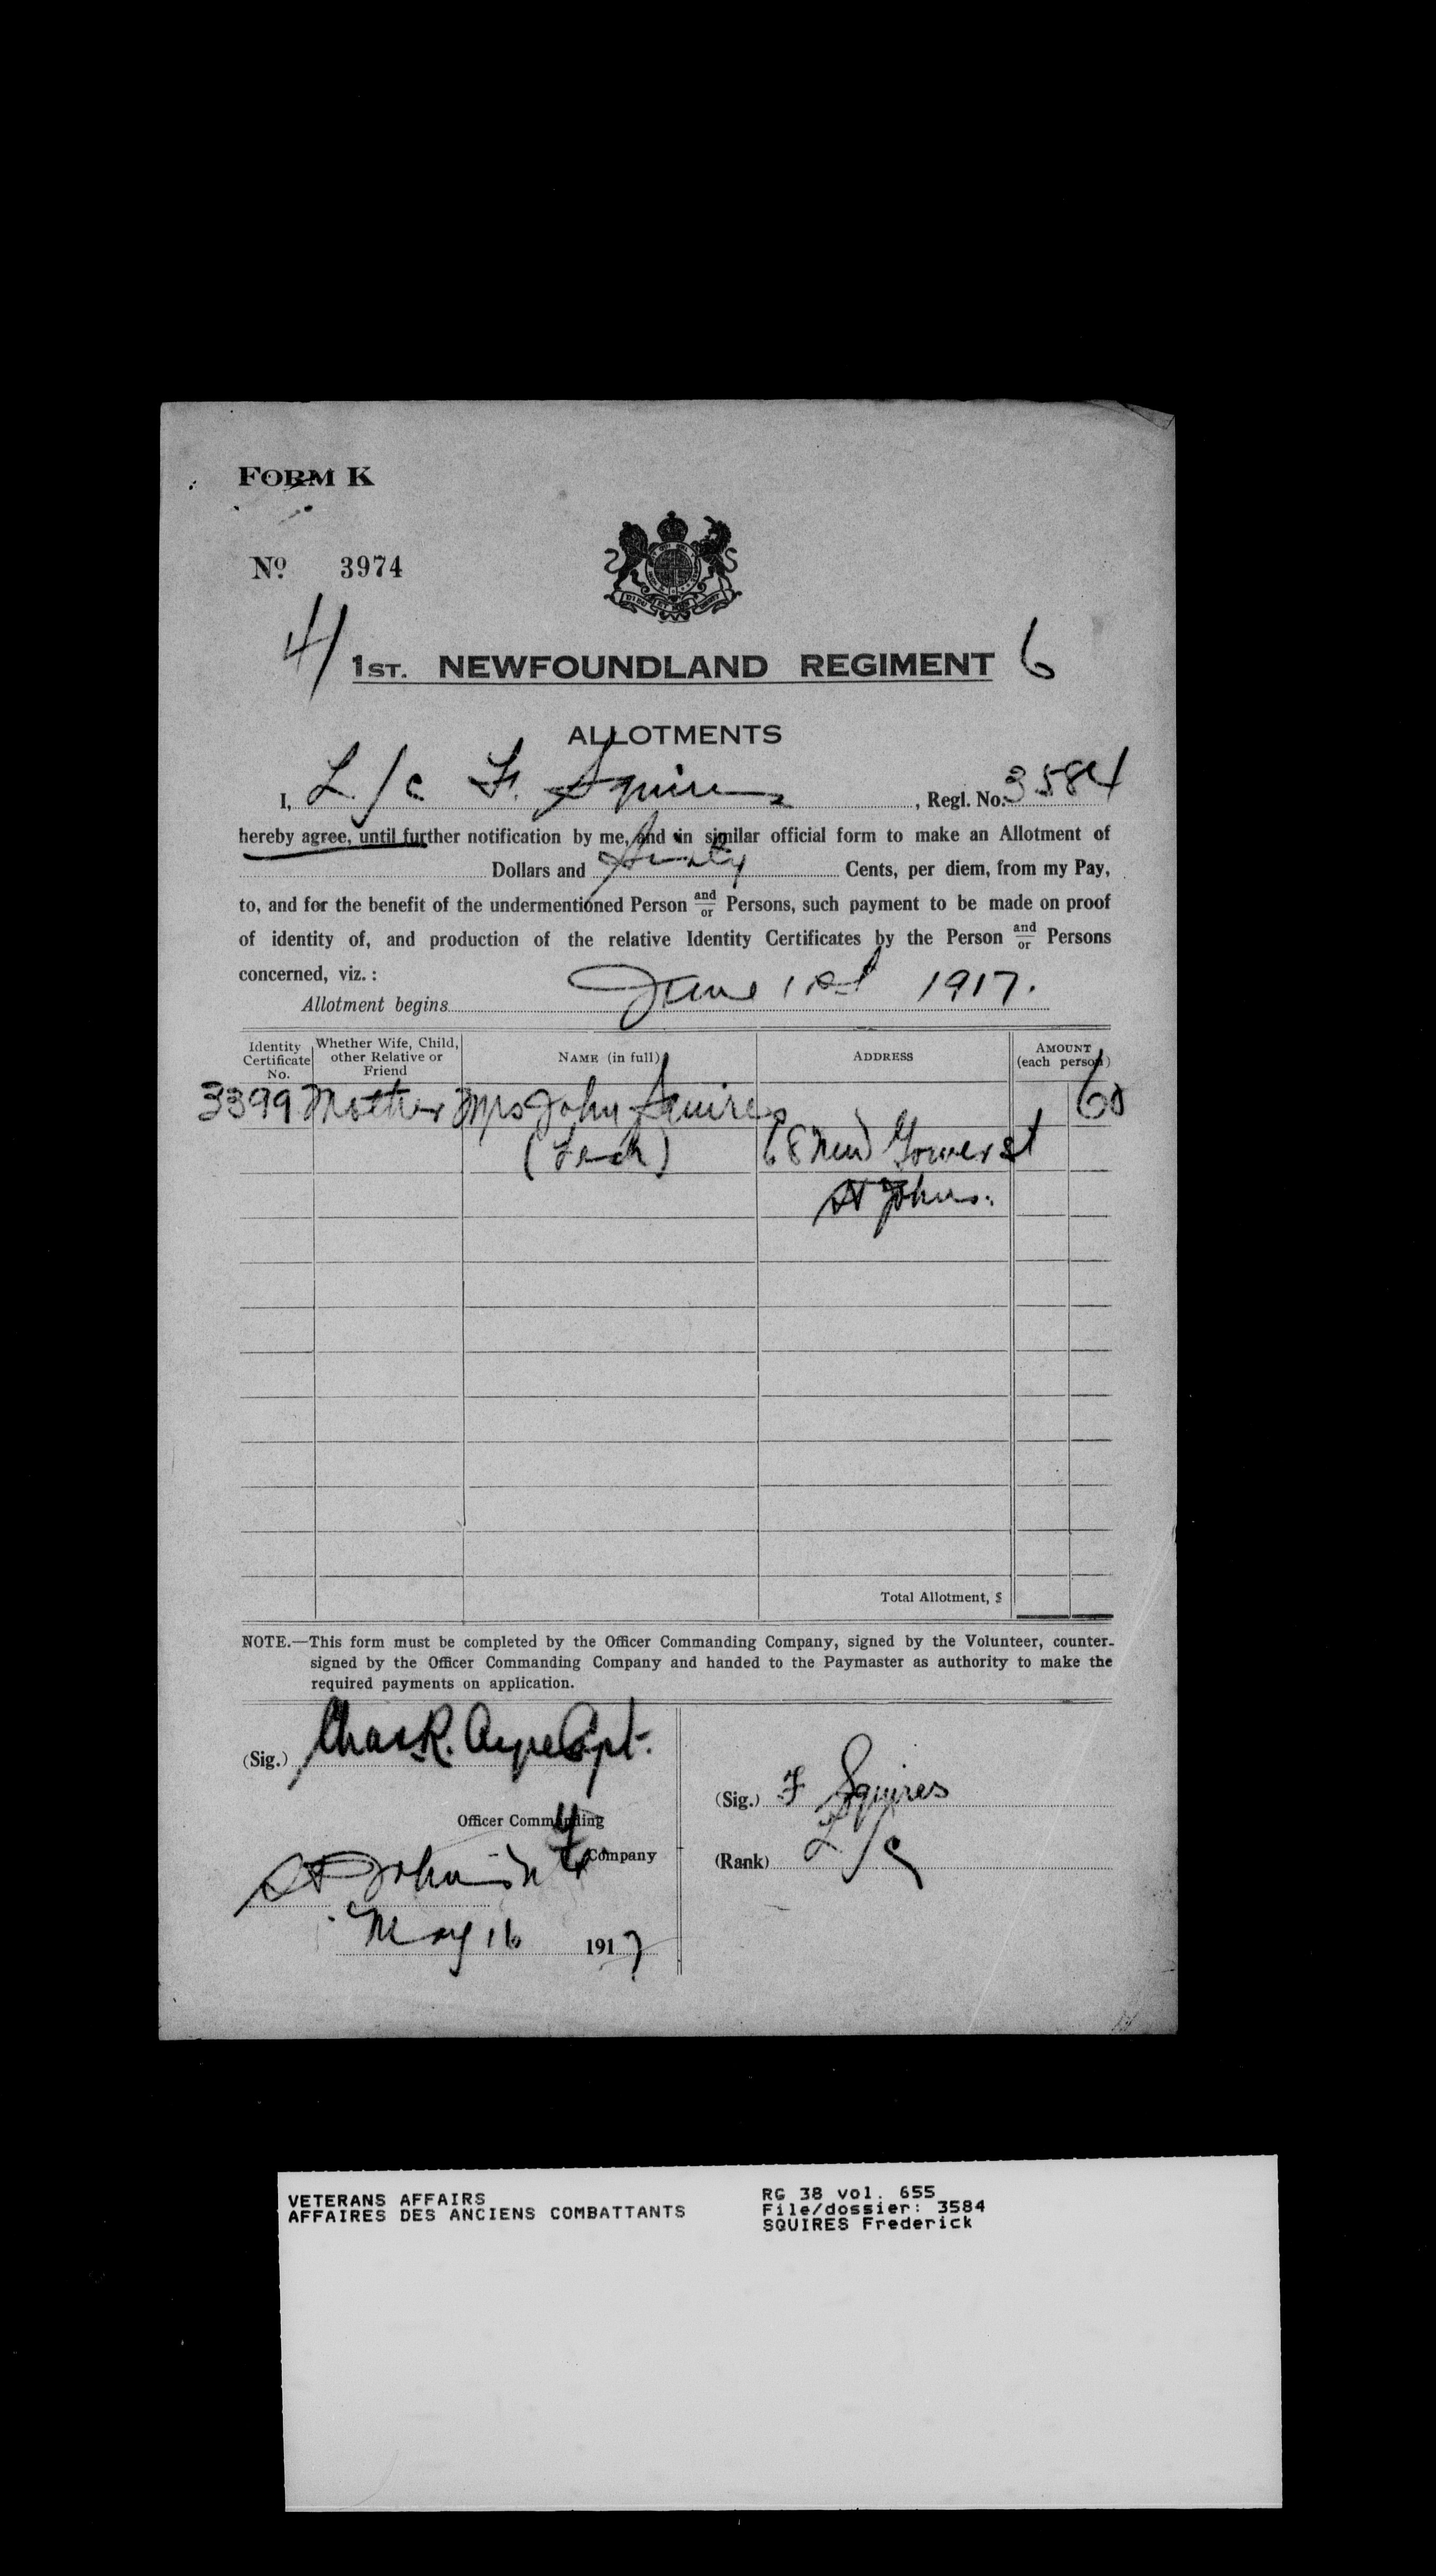 FORM K
No. 3974
4/ 1ST. NEWFOUNDLAND REGIMENT 6
ALLOTMENTS
I, L/c F. Squires, Regl. No. 3584
hereby agree, until further notification by me, and in similar official form to make an Allotment of
Dollars and Sixty Cents, per diem, from my Pay,
to, and for the benefit of the undermentioned Person and/or Persons, such payment to be made on proof
of identity of, and production of the relative Identity Certificates by the Person and/or Persons
concerned, viz. :
Allotment begins June 1st 1917.
Identity Certificate No. Whether Wife, Child, other Relative or Friend NAME (in full) ADDRESS AMOUNT (each person)
3399 Mother Mrs John Squires 60
68 New Gower St
St Johns.
Total Allotment, $
NOTE.—This form must be completed by the Officer Commanding Company, signed by the Volunteer, counter-
signed by the Officer Commanding Company and handed to the Paymaster as authority to make the
required payments on application.
(Sig.) Chas R. Ayre Capt.
Officer Commanding
Company
St John's
May 16 1917
(Sig.) F Squires
(Rank) L/c
VETERANS AFFAIRS
AFFAIRES DES ANCIENS COMBATTANTS
RG 38 vol. 655
File/dossier: 3584
SQUIRES Frederick